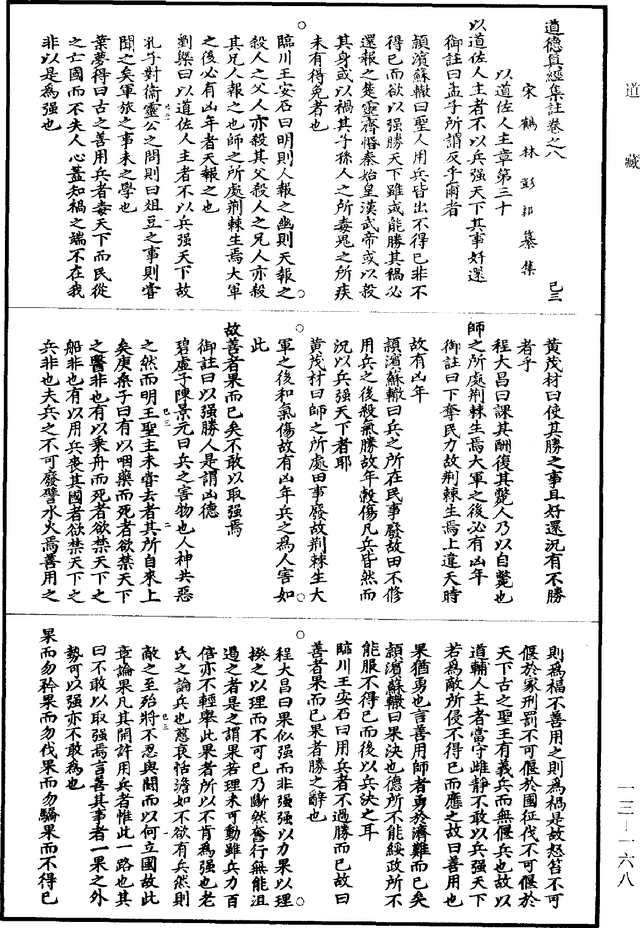 道藏
道德眞經集註卷之八
宋鶴林彭耜纂集
己三
以道佐人主章第三十
以道佐人主者不以兵强天下其事好還
御註曰孟子所謂反乎爾者
頴濱蘇轍曰聖人用兵皆出不得已非不
得已而欲以强勝天下雖或能勝其禍必
還報之楚靈齊愍秦始皇漢武帝或以殺
其身或以禍其子孫人之所毒鬼之所疾
未有得免者也
臨川王安石曰明則人報之幽則天報之
殺人之父人亦殺其父殺人之兄人亦殺
其兄人報之也師之所處荆棘生焉大軍
之後必有凶年者天報之也
劉槩曰以道佐人主者不以兵强天下故
孔子對衞靈公之問則曰俎豆之事則嘗
聞之矣軍旅之事未之學也
葉夢得曰古之善用兵者毒天下而民從
之亡國而不失人心蓋知禍之端不在我
非以是爲强也
黄茂材曰使其勝之事且好還況有不勝
者乎
程大昌曰課其酬復其斃人乃以自斃也
師之所處荆棘生焉大軍之後必有凶年
御註曰下奪民力故荆棘生焉上違天時
故有凶年
頴濱蘇轍曰兵之所在民事廢故田不修
用兵之後殺氣勝故年穀傷凡兵皆然而
況以兵强天下者耶
黄茂材曰師之所處田事廢故荆棘生大
軍之後和氣傷故有凶年兵之爲人害如
此
故善者果而已矣不敢以取强焉
御註曰以强勝人是謂凶德
碧虚子陳景元曰兵之害物也人神共惡
之然而明王聖主未嘗去者其所自來上
矣庚桑子曰有以咽藥而死者欲禁天下
之醫非也有以乘舟而死者欲禁天下之
船非也有以用兵喪其國者欲禁天下之
兵非也夫兵之不可廢譬水火焉善用之
則爲福不善用之則爲禍是故怒笞不可
偃於家刑罰不可偃於國征伐不可偃於
天下古之聖王有義兵而無偃兵也故以
道輔人主者當守雌靜不敢以兵强天下
若爲敵所侵不得已而應之故曰善用也
果猶勇也言善用師者勇於濟難而已矣
頴濱蘇轍曰果決也德所不能綏政所不
能服不得已而後以兵決之耳
臨川王安石曰用兵者不過勝而已故曰
善者果而已果者勝之辭也
程大昌曰果似强而非强强以力果以理
揆之以理而不可已乃斷然奮行無能沮
遏之者是之謂果若理未可動雖兵力百
倍亦不輕舉此果者所以不肯爲强也老
氏之論兵也慈哀恬澹如不欲有兵然則
敵之至殆將不忍與鬬而以何立國故此
章論果凡其開許用兵者惟此一路也其
曰不敢以取强焉言善其事者一果之外
勢可以强亦不敢爲也
果而勿矜果而勿伐果而勿驕果而不得已
一三—一六八